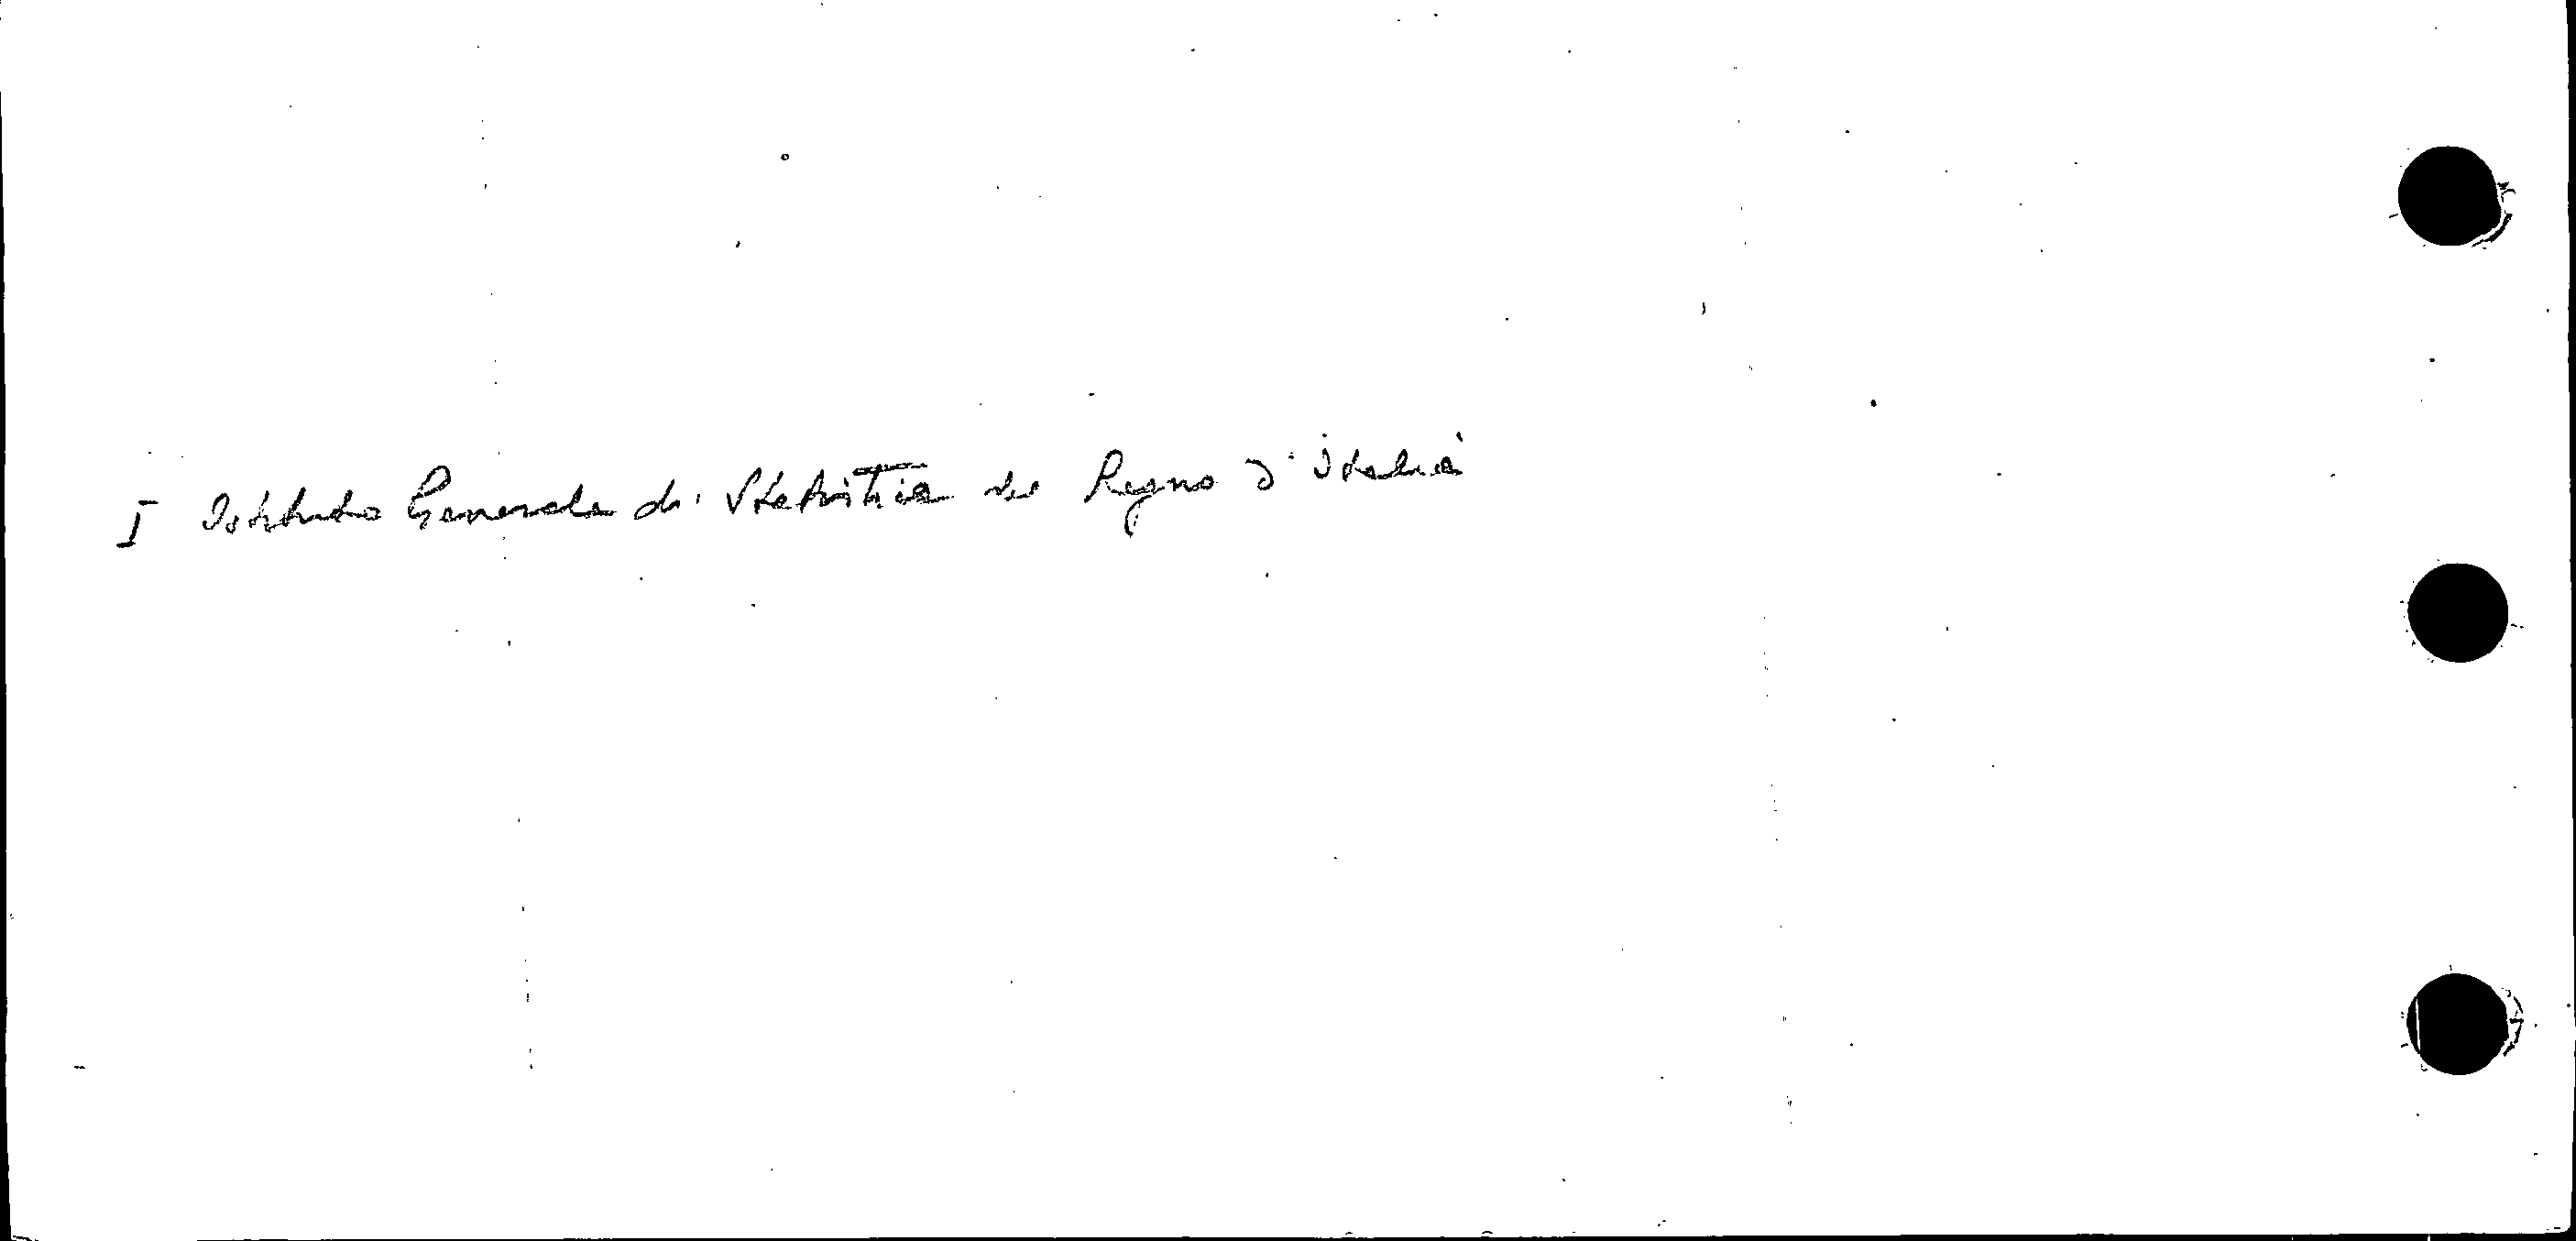 I Istituto Generale di Statistica del Regno d'Italia